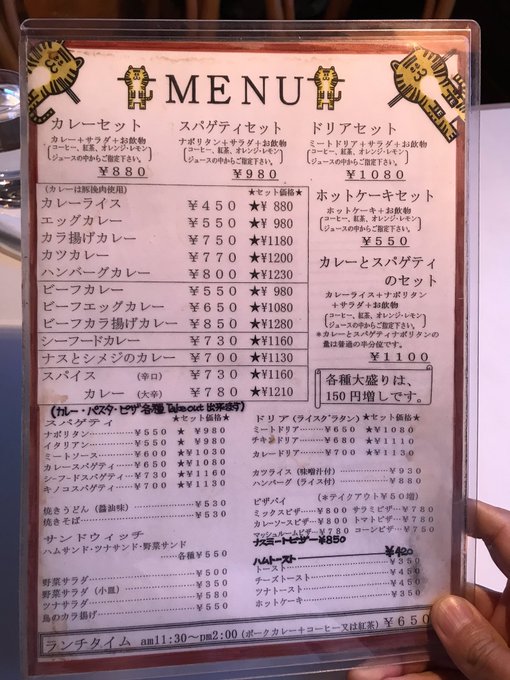 MENU
カレーセット
カレー＋サラダ＋お飲物
コーヒー、紅茶、オレンジ・レモン
ジュースの中からご指定下さい。
￥880
スパゲティセット
ナポリタン＋サラダ＋お飲物
コーヒー、紅茶、オレンジ・レモン
ジュースの中からご指定下さい。
￥980
ドリアセット
ミートドリア＋サラダ＋お飲物
コーヒー、紅茶、オレンジ・レモン
ジュースの中からご指定下さい。
￥1080
(カレーは豚挽肉使用) ★セット価格★
カレーライス ￥450 ★￥880
エッグカレー ￥550 ★￥980
カラ揚げカレー ￥750 ★￥1180
カツカレー ￥770 ★￥1200
ハンバーグカレー ￥800 ★￥1230
ビーフカレー ￥550 ★￥980
ビーフエッグカレー ￥650 ★￥1080
ビーフカラ揚げカレー ￥850 ★￥1280
シーフードカレー ￥730 ★￥1160
ナスとシメジのカレー ￥700 ★￥1130
スパイス (辛口) ￥730 ★￥1160
カレー (大辛) ￥780 ★￥1210
ホットケーキセット
ホットケーキ＋お飲物
コーヒー、紅茶、オレンジ・レモン
ジュースの中からご指定下さい。
￥550
カレーとスパゲティ
のセット
カレーライス＋ナポリタン
＋サラダ＋お飲物
コーヒー、紅茶、オレンジ・レモン
ジュースの中からご指定下さい。
*カレーとスパゲティナポリタンの
量は普通の半分位です。
￥1100
各種大盛りは、
150円増しです。
(カレー・パスタ・ピザ各種 Takeout 出来ます)
スパゲティ ★セット価格★
ナポリタン……￥550 ★￥980
イタリアン……￥550 ★￥980
ミートソース……￥600 ★￥1030
カレースパゲティ……￥650 ★￥1080
シーフードスパゲティ……￥730 ★￥1160
キノコスパゲティ……￥700 ★￥1130
焼きうどん（醤油味）……￥530
焼きそば……￥530
サンドウィッチ
ハムサンド・ツナサンド・野菜サンド
……各種￥550
野菜サラダ……￥500
野菜サラダ（小皿）……￥350
ツナサラダ……￥580
鳥のカラ揚げ……￥550
ドリア（ライスグラタン）★セット価格★
ミートドリア……￥650 ★￥1080
チキンドリア……￥680 ★￥1110
カレードリア……￥700 ★￥1130
カツライス（味噌汁付）……￥930
ハンバーグ（ライス付）……￥880
ピザパイ (*テイクアウト￥50増)
ミックスピザ……￥800 サラミピザ…￥780
カレーソースピザ……￥800 トマトピザ…￥780
マッシュルームピザ…￥780 コーンピザ…￥750
ナスミートピザー￥850
ハムトースト ￥420
トースト……￥350
チーズトースト……￥450
ツナトースト……￥450
ホットケーキ……￥350
ランチタイム am11:30～pm2:00 (ポークカレー＋コーヒー又は紅茶) ￥650